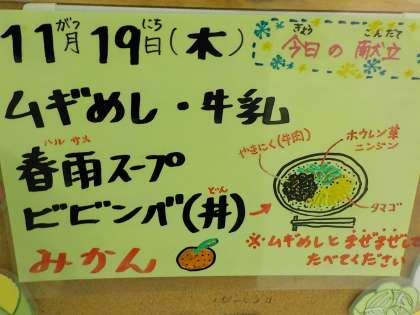 11月 19日(木)
がつ にち
今日の献立
きょう こんだて
ムギめし・牛乳
春雨スープ
ハル サメ
ビビンバ(丼)
どん
みかん
やきにく(牛肉)
ホウレン草
ニンジン
タマゴ
※ムギめしとまぜまぜして
たべてください